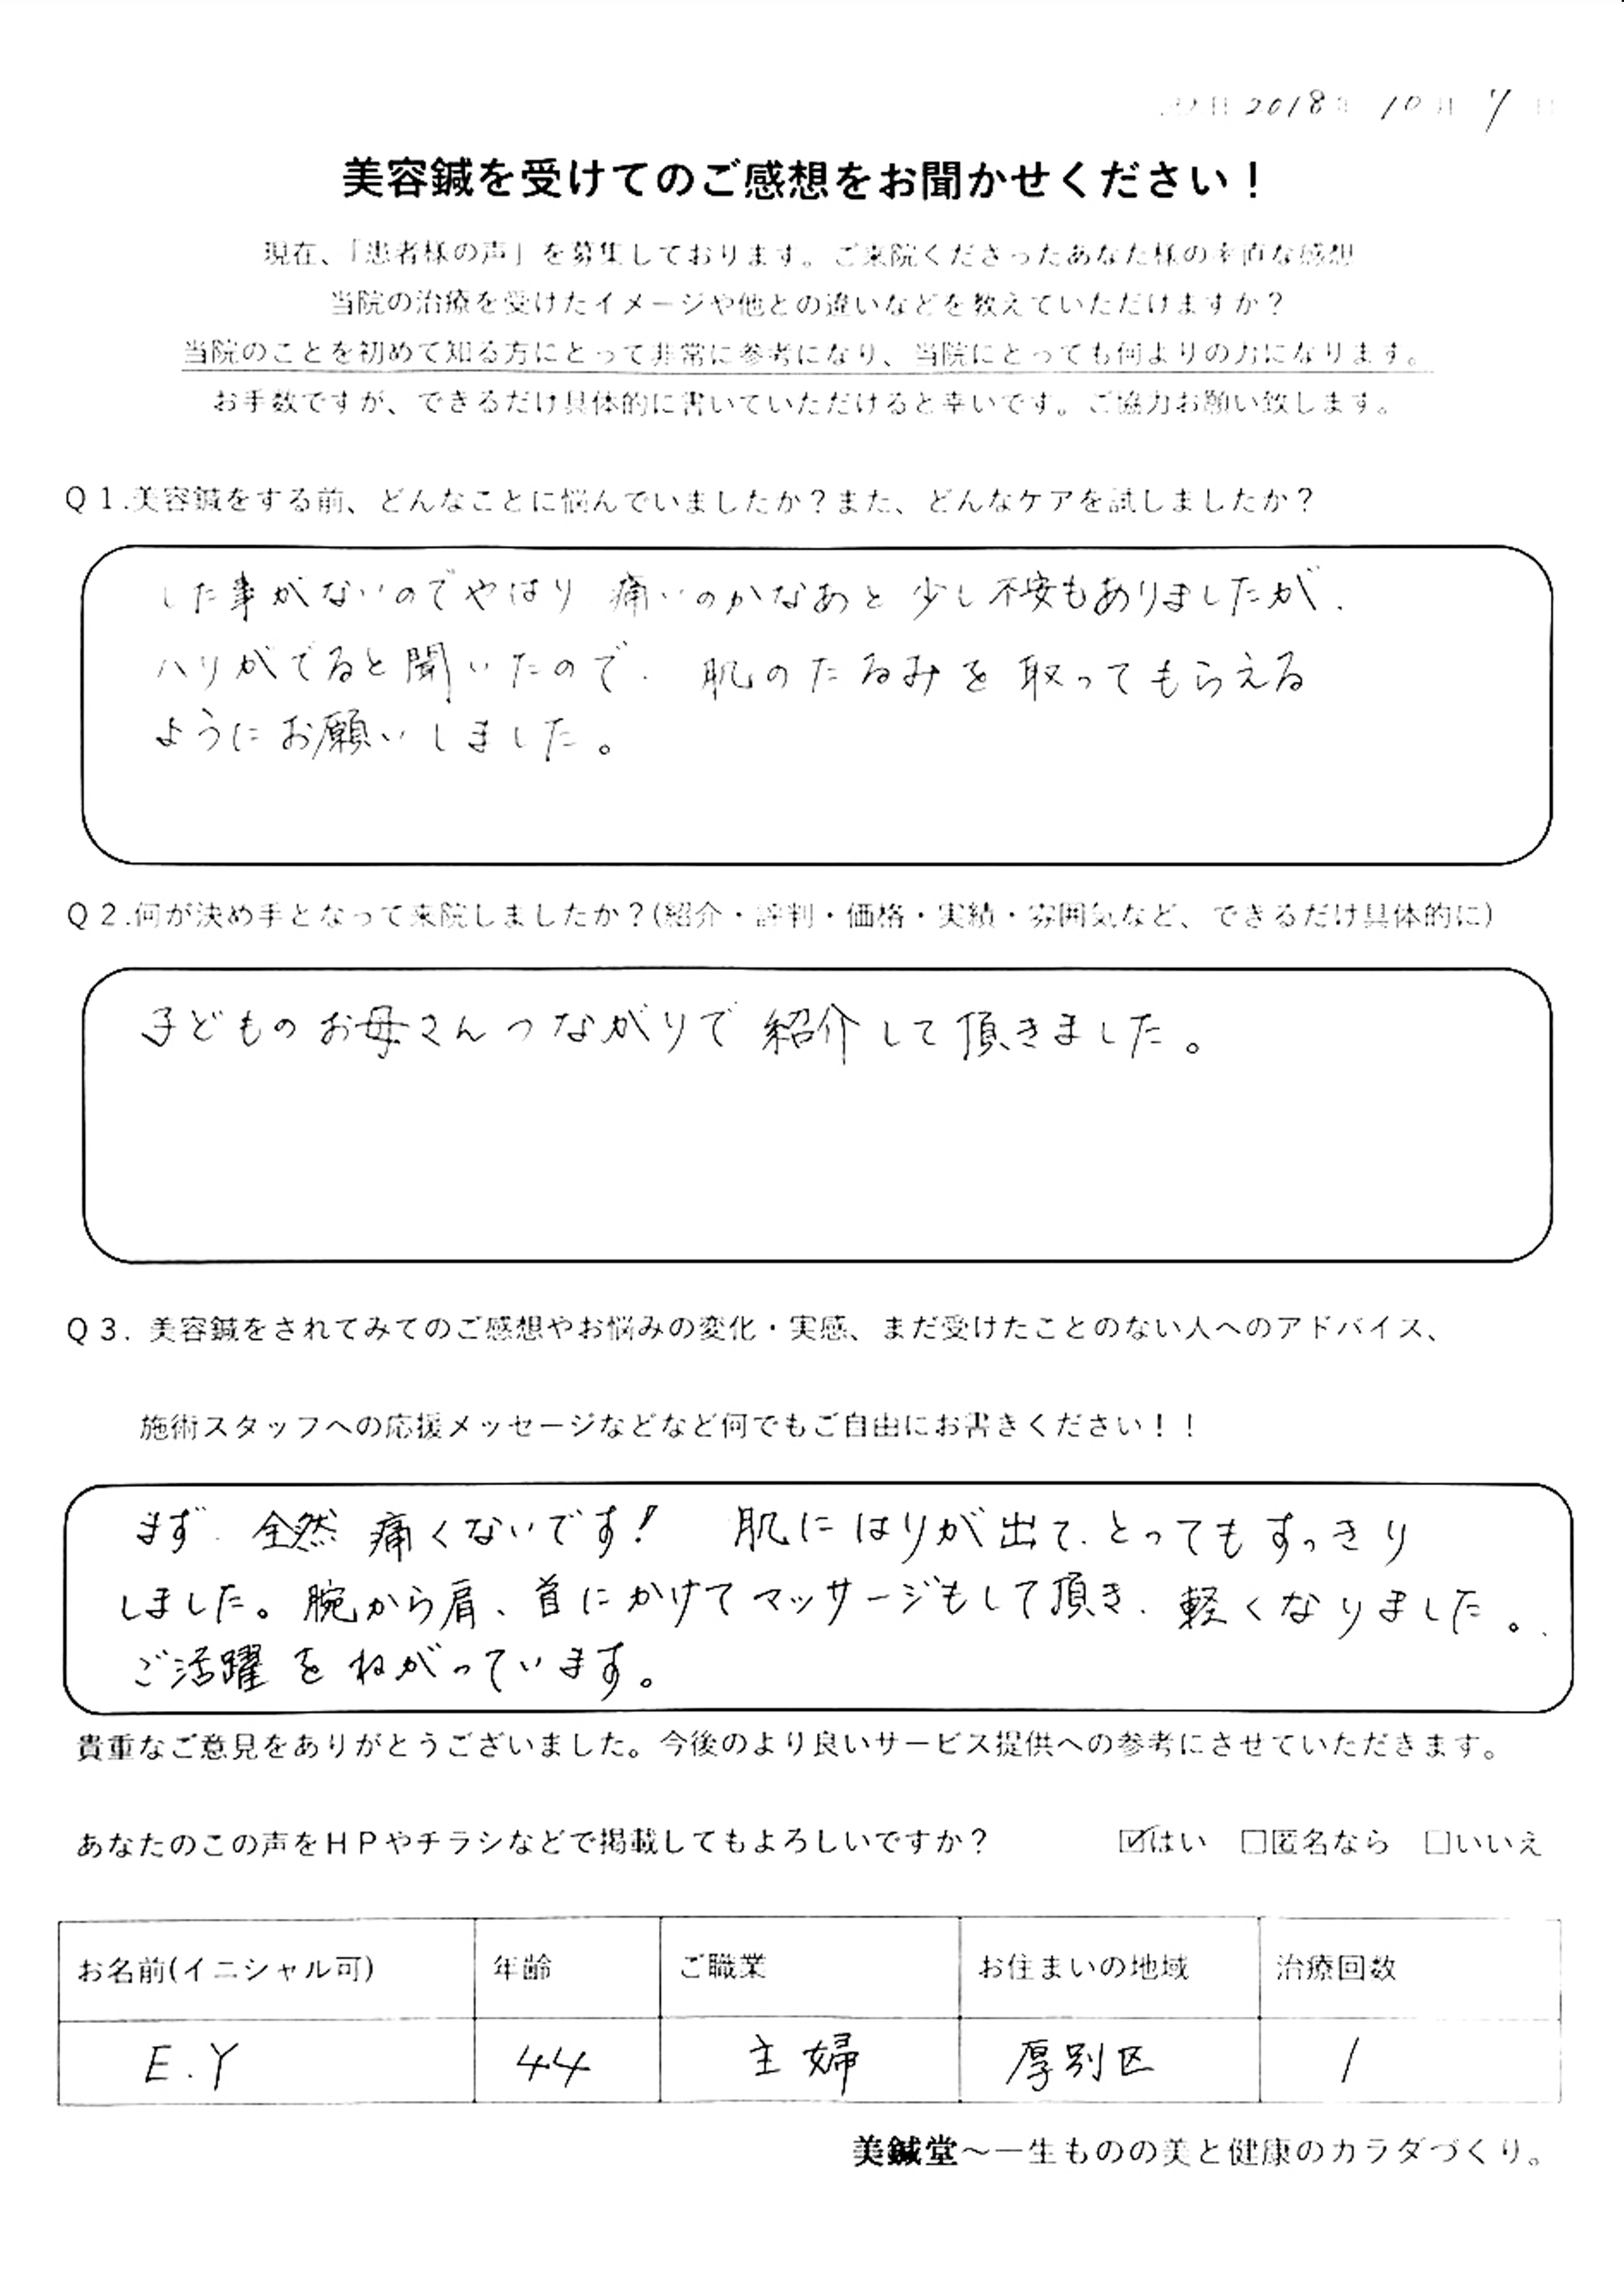 2018年 10月 7日
美容鍼を受けてのご感想をお聞かせください！
現在、「患者様の声」を募集しております。ご来院くださったあなた様の率直な感想
当院の治療を受けたイメージや他との違いなどを教えていただけますか？
当院のことを初めて知る方にとって非常に参考になり、当院にとっても何よりの力になります。
お手数ですが、できるだけ具体的に書いていただけると幸いです。ご協力お願い致します。
Ｑ１.美容鍼をする前、どんなことに悩んでいましたか？また、どんなケアを試しましたか？
した事がないのでやはり 痛いのかなあと 少し不安もありましたが、
ハリがでると聞いたので、肌のたるみを取ってもらえる
ようにお願いしました。
Ｑ２.何が決め手となって来院しましたか？(紹介・評判・価格・実績・雰囲気など、できるだけ具体的に)
子どものお母さんつながりで紹介して頂きました。
Ｑ３. 美容鍼をされてみてのご感想やお悩みの変化・実感、まだ受けたことのない人へのアドバイス、
施術スタッフへの応援メッセージなどなど何でもご自由にお書きください！！
まず、全然 痛くないです！ 肌にはりが出て、とってもすっきり
しました。腕から肩、首にかけてマッサージもして頂き、軽くなりました。
ご活躍をねがっています。
貴重なご意見をありがとうございました。今後のより良いサービス提供への参考にさせていただきます。
あなたのこの声をＨＰやチラシなどで掲載してもよろしいですか？ ☑はい □匿名なら □いいえ
お名前(イニシャル可) 年齢 ご職業 お住まいの地域 治療回数
E.Y 44 主婦 厚別区 1
美鍼堂～一生ものの美と健康のカラダづくり。